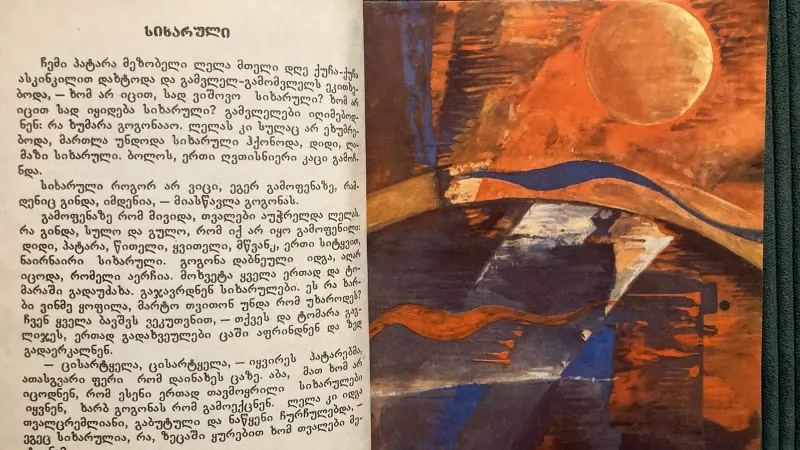 სიხარული
ჩემი პატარა მეზობელი ლელა მთელი დღე ქუჩა-ქუჩა
ასკინკილით დახტოდა და გამვლელ-გამომვლელს ეკითხე-
ბოდა, — ხომ არ იცით, სად ვიშოვო სიხარული? ხომ არ
იცით სად იყიდება სიხარული? გამვლელები იღიმებოდ-
ნენ: რა ხუმარა გოგონააო. ლელას კი სულაც არ ეხუმრე-
ბოდა, მართლა უნდოდა სიხარული ჰქონოდა, დიდი, ლა-
მაზი სიხარული. ბოლოს, ერთი ღვთისნიერი კაცი გამოჩ-
ნდა.
სიხარული როგორ არ ვიცი, ეგერ გამოფენაზე, რამ-
დენიც გინდა, იმდენია, — მიასწავლა გოგონას.
გამოფენაზე რომ მივიდა, თვალები აუჭრელდა ლელას.
რა გინდა, სულო და გულო, რომ იქ არ იყო გამოფენილი:
დიდი, პატარა, წითელი, ყვითელი, მწვანე, ერთი სიტყვით,
ნაირნაირი სიხარული. გოგონა დაბნეული იდგა, აღარ
იცოდა, რომელი აერჩია. მოხვეტა ყველა ერთად და ტო-
მარაში გადაუძახა. გაჯავრდნენ სიხარულები. ეს რა ხარ-
ბი ვინმე ყოფილა, მარტო თვითონ უნდა რომ უხაროდეს?
ჩვენ ყველა ბავშვს ვეკუთვნით, — თქვეს და ტომარა გაგ-
ლიჯეს, ერთად გადახვეულები ცაში აფრინდნენ და ზედ
გადაერკალნენ.
— ცისარტყელა, ცისარტყელა, — იყვირეს პატარებმა,
ათასგვარი ფერი რომ დაინახეს ცაზე. აბა, მათ ხომ არ
იცოდნენ, რომ ესენი ერთად თავმოყრილი სიხარულები
იყვნენ, ხარბ გოგონას რომ გამოექცნენ. ლელა კი იდგა
თვალცრემლიანი, გაბუტული და ნაწყენი ჩურჩულებდა, —
ეგეც სიხარულია, რა, ზეცაში ყურებით ხომ თვალები მე-